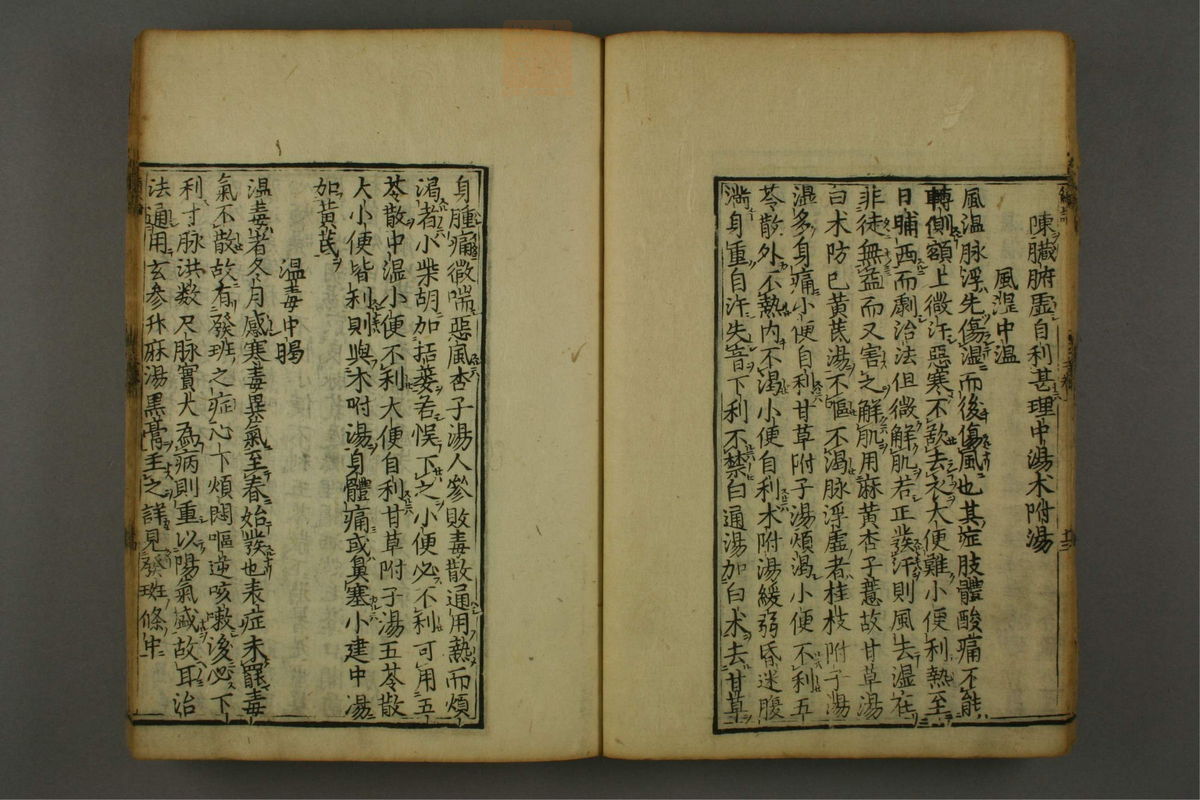 陳臟腑虛自利甚理中湯木附湯
風湿中温
風温脉浮先傷温而後傷風也其症肢體酸痛不能
轉側額上微汗惡寒不欲去衣大便難小便利熱至
日晡西而劇治法但微解肌若正發汗則風去湿在
非徒無益而又害之解肌用麻黃杏子薏故甘草湯
白术防巳黃芪湯不嘔不渴脉浮虛者桂枝附子湯
温多身痛小便自利甘草附子湯煩渴小便不利五
苓散外不熱内不渴小便自利术附湯緩弱昏迷腹
滿身重自汗失音下利不禁白通湯加白术去甘草
身腫痛微喘惡風杏子湯人參敗毒散通用熱而煩
渴者小柴胡加括蔞若悞下之小便必不利可用五
苓散中温小便不利大便自利甘草附子湯五苓散
大小便皆利則與术附湯身體痛或鼻塞小建中湯
如黃芪
温毒中暍
温毒者冬月感寒毒異氣至春始發也表症未罷毒
氣不散故有發班之症心下煩悶嘔逆咳嗽後必下
利寸脉洪数尺脉實大為病則重以陽氣盛故耳治
法通用玄参升麻湯黑膏主之詳見發班條中